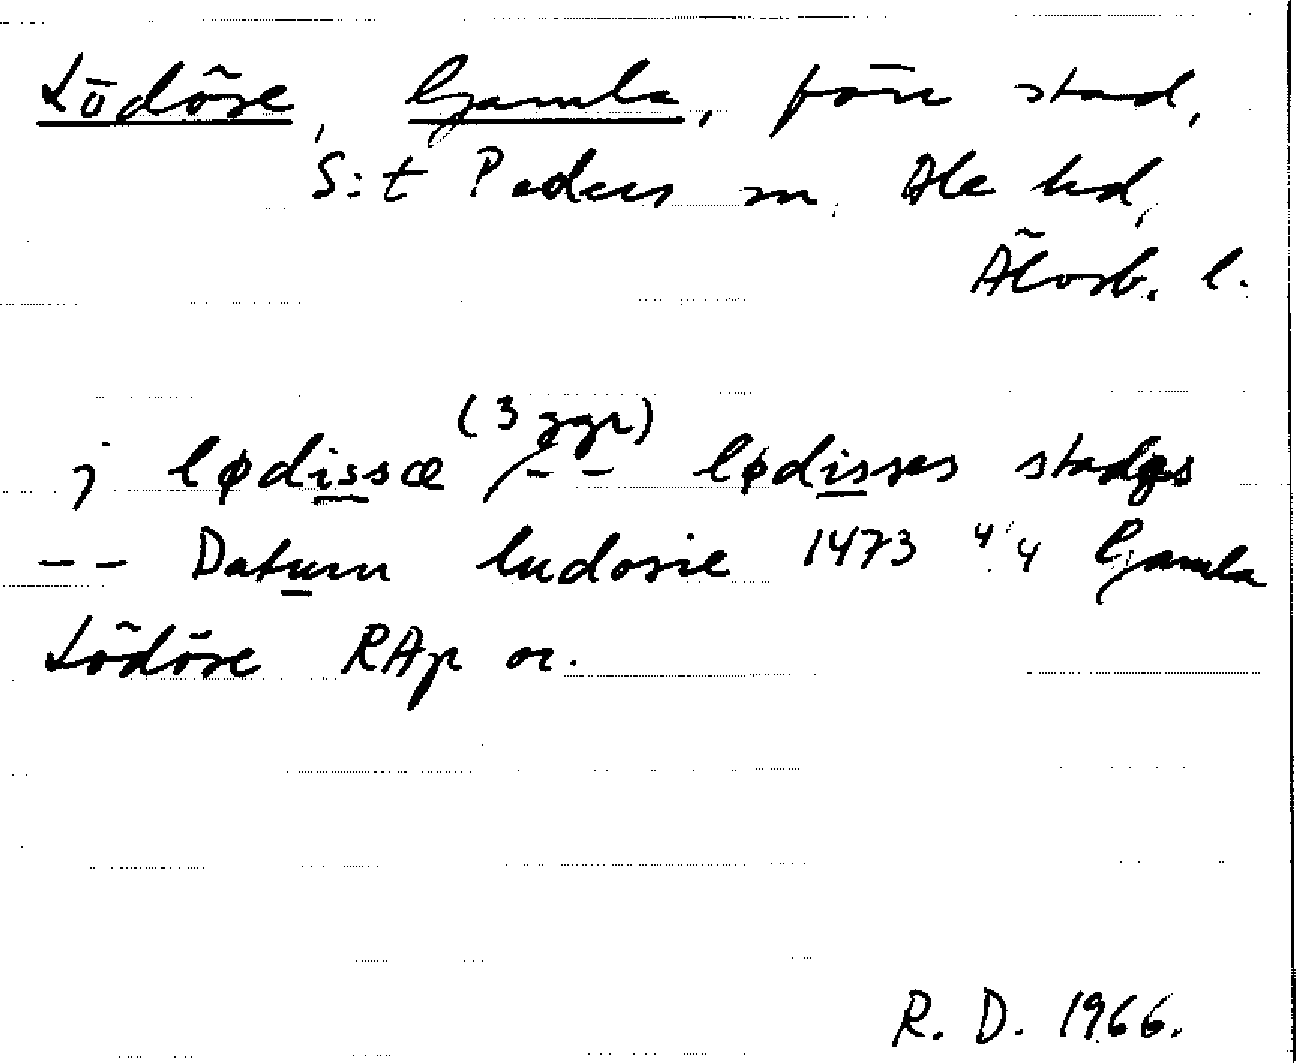 Lödöse, Gamla, förr stad,
S:t Peders sn, Ale hd,
Älvsb. l.
(3 ggr)
j lødissæ -- lødisses stadgs
-- Datum ludosie 1473 4/4 Gamla
Lödöse RAp or.
R. D. 1966.